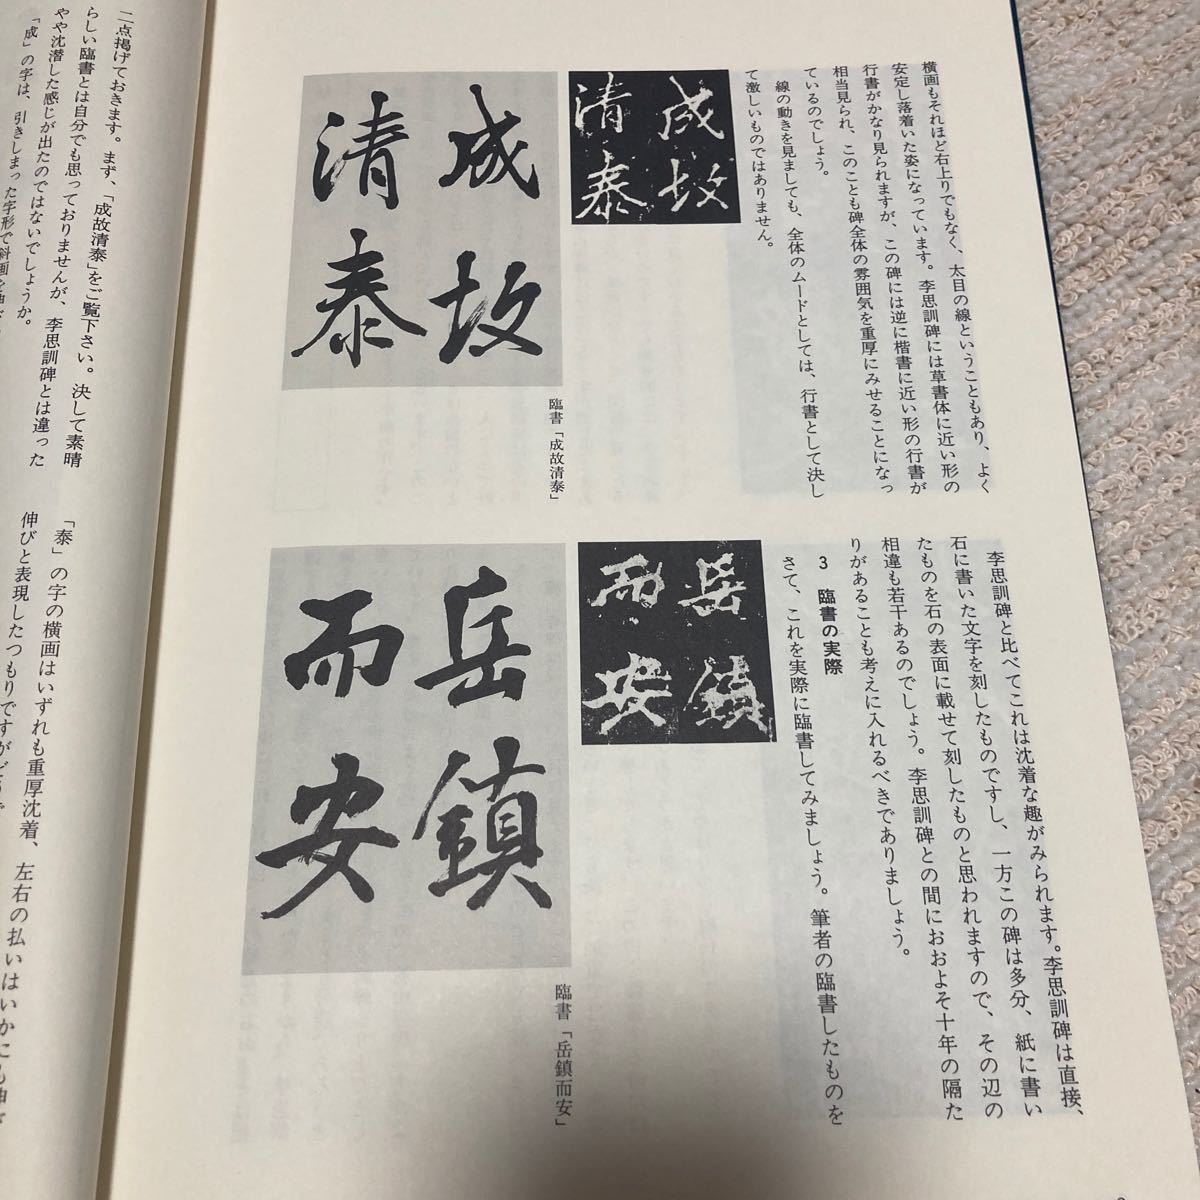 横画もそれほど右上りでもなく、太目の線ということもあり、よく
安定し落着いた姿になっています。李思訓碑には草書体に近い形の
行書がかなり見られますが、この碑には逆に楷書に近い形の行書が
相当見られ、このことも碑全体の雰囲気を重厚にみせることになっ
ているのでしょう。
線の動きを見ましても、全体のムードとしては、行書として決し
て激しいものではありません。
成故
清泰
成故
清泰
臨書「成故清泰」
李思訓碑と比べてこれは沈着な趣がみられます。李思訓碑は直接、
石に書いた文字を刻したものですし、一方この碑は多分、紙に書い
たものを石の表面に載せて刻したものと思われますので、その辺の
相違も若干あるのでしょう。李思訓碑との間におおよそ十年の隔た
りがあることも考えに入れるべきでありましょう。
3 臨書の実際
さて、これを実際に臨書してみましょう。筆者の臨書したものを
岳鎮
而安
岳鎮
而安
臨書「岳鎮而安」
二点掲げておきます。まず、「成故清泰」をご覧下さい。決して素晴
らしい臨書とは自分でも思っておりませんが、李思訓碑とは違った
やや沈潜した感じが出たのではないでしょうか。
「成」の字は、引きしまった字形で斜画を
「泰」の字の横画はいずれも重厚沈着、左右の払いはいかにも
伸びと表現したつもりですが